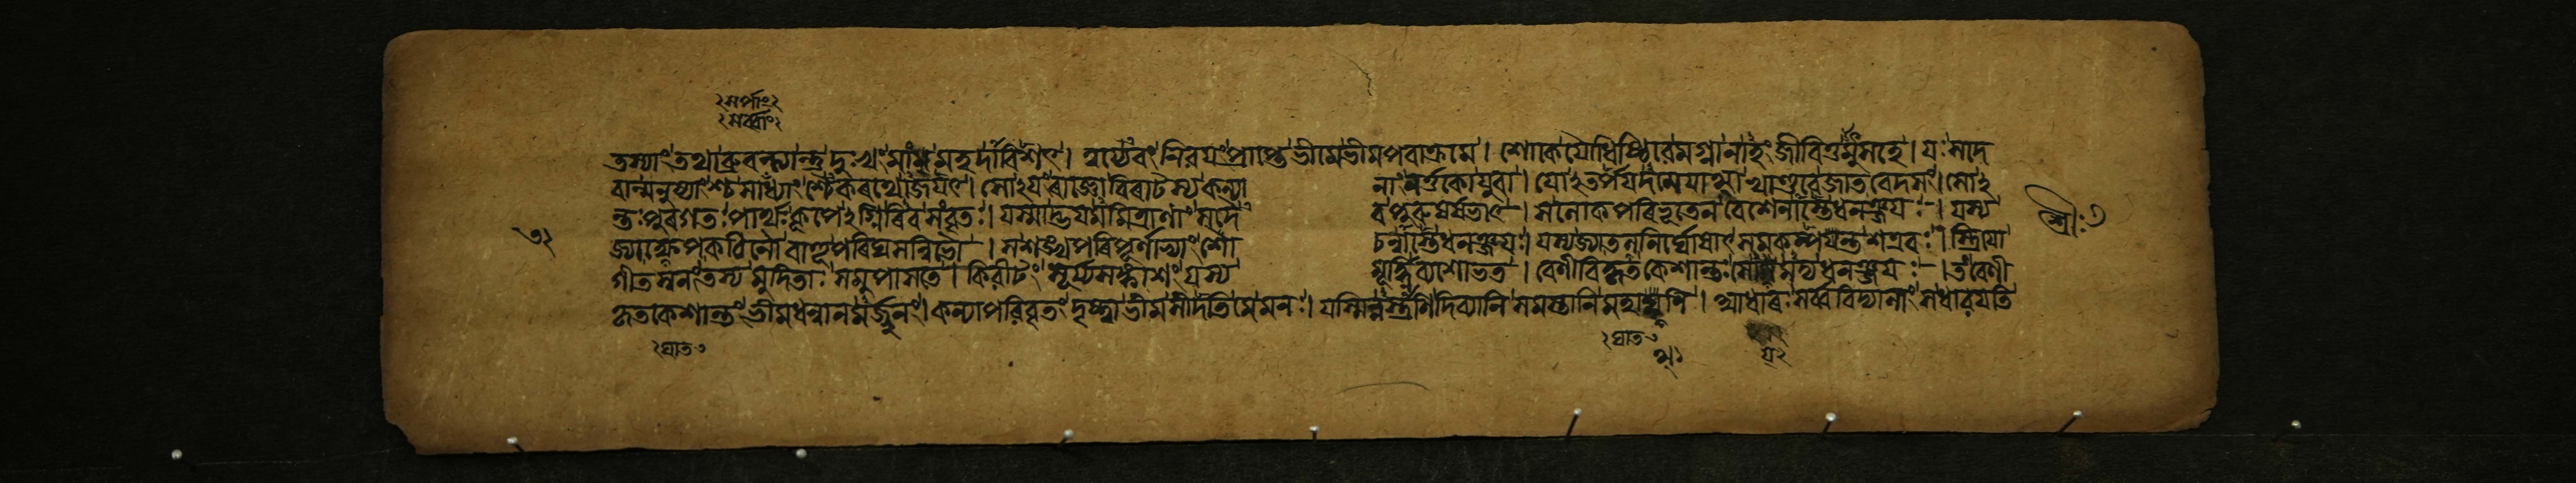 সর্পাং২
সর্ব্বাং২
তস্যাং তথা ব্রুবন্ত্যান্তু দুঃখং মাং মহদাবিশৎ। ত্বয্যেবং নিরয়ং প্রাপ্তে ভীমে ভীমপরাক্রমে। শোকে যৌধিষ্ঠিরে মগ্না নাহং জীবিতুমুৎসহে। যঃ সদে
বান্মনুষ্যাংশ্চ সর্পাংশ্চৈকরথোজয়ৎ। সোঽয়ং রাজ্ঞো বিরাটস্য কন্যানাং নর্ত্তকো যুবা। যোঽতর্পয়দমেয়াত্মা খাণ্ডবে জাতবেদসং। সোঽ
ন্তঃপুরগতঃ পার্থঃ কূপেঽগ্নিরিব সংবৃতঃ। যস্মাদ্ভয়মমিত্রাণাং সদৈবপুরুষর্ষভাৎ। স লোকপরিভূতেন বেশেনাস্তে ধনঞ্জয়ঃ। যস্য
জ্যাক্ষেপকঠিনৌ বাহূ পরিঘসন্নিভৌ। স শঙ্খপরিপূর্ণাভ্যাং শোচন্নাস্তে ধনঞ্জয়ঃ। যস্য জ্যাতলনির্ঘোষাৎ সমকম্পন্ত শত্রবঃ। স্ত্রিয়ো
গীতস্বনং তস্য মুদিতাঃ সমুপাসতে। কিরীটং সূর্য্যসঙ্কাশং যস্য মূর্দ্ধ্নি ব্যশোভত। বেণীবিকৃতকেশান্তঃ সোঽয়মদ্য ধনঞ্জয়ঃ। তং বেণী
কৃতকেশান্তং ভীমধন্বানমর্জ্জুনং। কন্যাপরিবৃতং দৃষ্ট্বা ভীম সীদতি মে মনঃ। যস্মিন্নস্ত্রাণি দিব্যানি সমস্তানি মহাত্মনি। আধারঃ সর্ব্ববিদ্যানাং স ধারয়তি